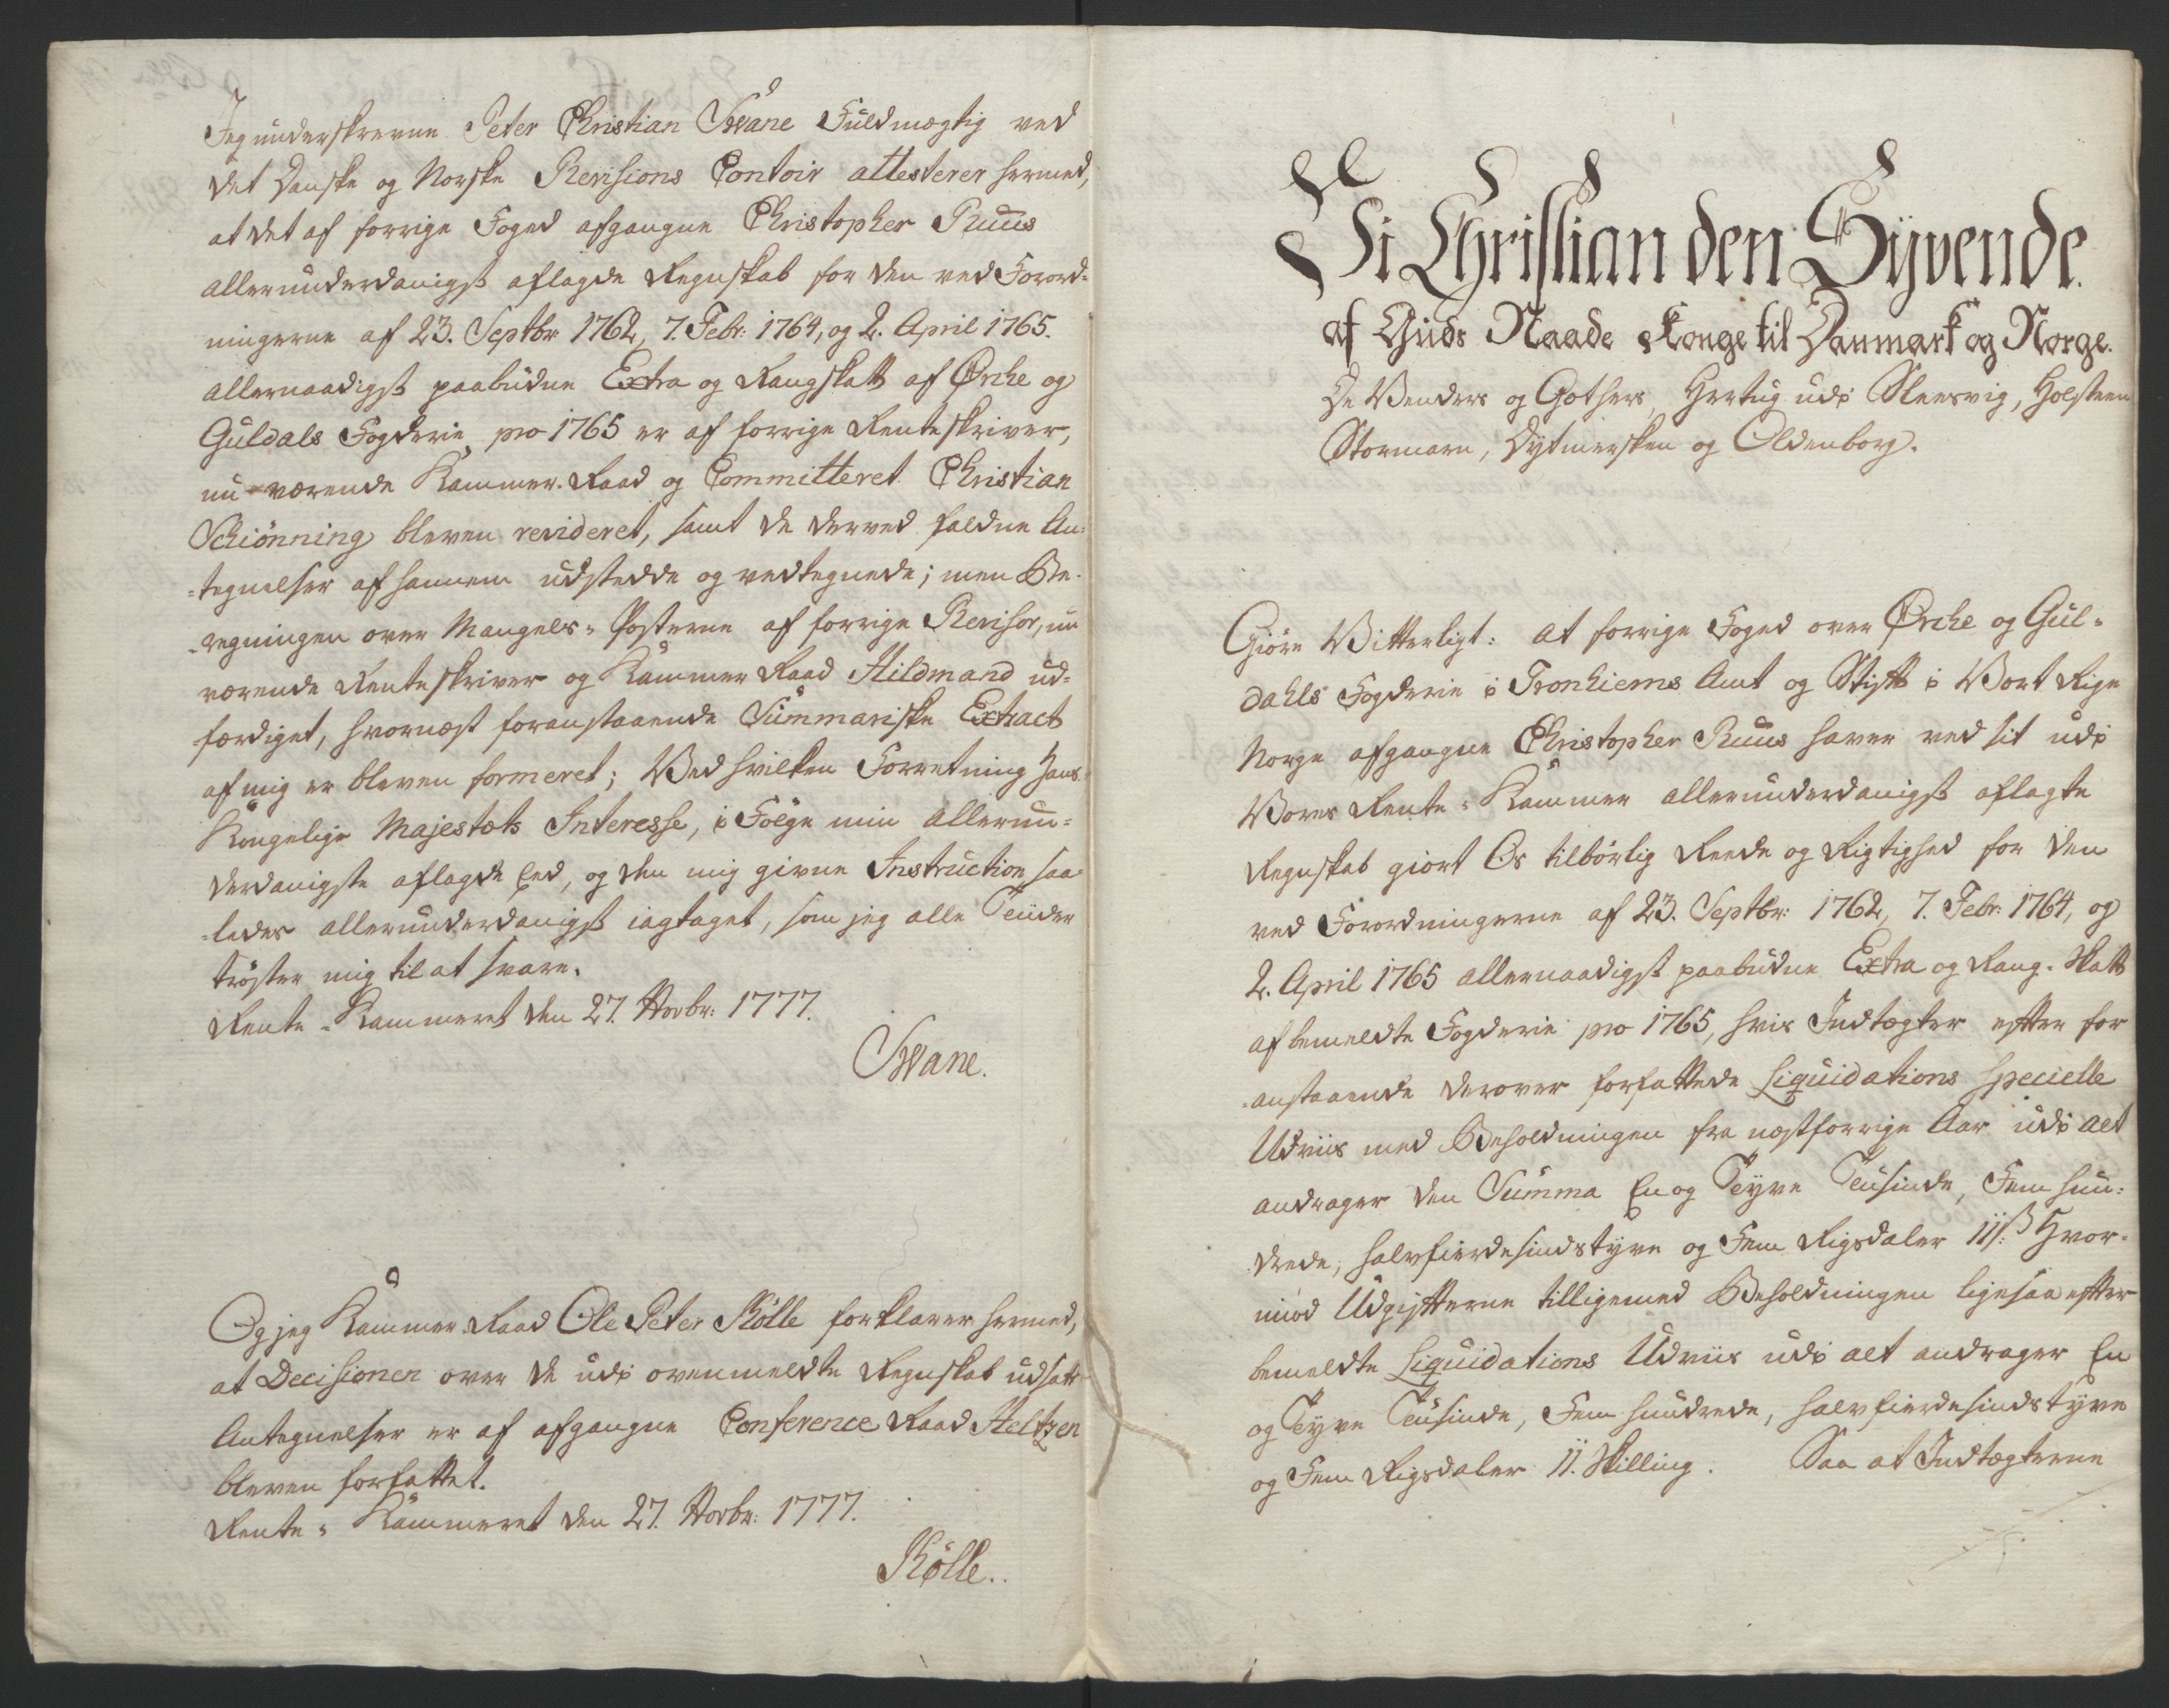 Jeg underskrevne Peter Christian Swane Fuldmægtig ved
det Danske og Norske Revisions Contoir attesterer hermed,
at det af forrige Foged afgangne Christopher Ruus
allerunderdanigst aflagde Regnskab for den ved Forord-
ningerne af 23. Septbr 1762, 7. Febr: 1764, og 2. April 1765.
allernaadigst paabudne Extra og Rangskatt af Örche og
Guldals Fogderie pro 1765 er af forrige Renteskriver,
nu værende Kammer-Raad og Committeret Christian
Schiönning bleven revideret, samt de derved faldne An-
-tegnelser af hannem udstedde og vedtegnede; men Be-
-regningen over Mangels-Posterne af forrige Revisor, nu
værende Renteskriver og Kammer Raad Hildmand ud-
færdiget, hvornæst foranstaaende Summariske Extract
af mig er bleven formeret; Ved hvilken Forretning Hans
Kongelige Majestæts Interesse, i Fölge min allerun-
derdanigste aflagde Eed, og den mig givne Instruction saa-
-ledes allerunderdanigst iagtaget, som jeg alle Tiider
tröster mig til at svare.
Rente-Kammeret den 27. Novbr: 1777.
Swane.
Og jeg Kammer Raad Ole Peter Kölle forklarer hermed,
at Decisionen over de udi ovenmeldte Regnskab udsatte
Antegnelser er af afgangne Conference Raad Heltzen
bleven forfattet.
Rente-Kammeret den 27. Novbr: 1777.
Kölle.
Vi Christian den Syvende.
af Guds Naade Konge til Danmark og Norge.
De Venders og Gothers, Hertug udi Slesvig, Holsteen
Stormarn, Dytmersken og Oldenborg.
Giöre Vitterligt: at forrige Foged over Örche og Gul-
dahls Fogderie i Tronhiems Amt og Stift i Vort Rige
Norge afgangne Christopher Ruus haver ved sit udi
Vores Rente-Kammer allerunderdanigst aflagte
Regnskab giort Os tilbörlig Reede og Rigtighed for den
ved Forordningerne af 23. Septbr: 1762, 7. Febr: 1764, og
2. April 1765 allernaadigst paabudne Extra og Rang-Skatt
af bemeldte Fogderie pro 1765, hvis Indtægter efter for
-anstaaende derover forfattede Liquidations specielle
Udviis med Beholdningen fra næstforrige Aar udi alt
andrager den Summa En og Tyve Tusinde, Fem hun-
drede, halvfierdesindstyve og Fem Rigsdaler 11 ß. Hvor-
imod Udgifterne tilligemed Beholdningen ligesaa efter
bemeldte Liquidations Udviis udi alt andrager En
og Tyve Tusinde, Fem hundrede, halvfierdesindstyve
og Fem Rigsdaler 11. Skilling. Saa at Indtægterne